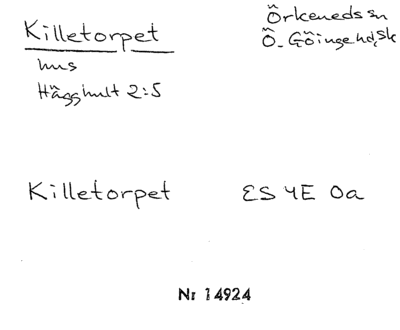 Killetorpet
hus
Hägghult 2:5
Örkeneds sn
Ö. Göinge hd, Sk
Killetorpet
ES 4E 0a
Nr 14924